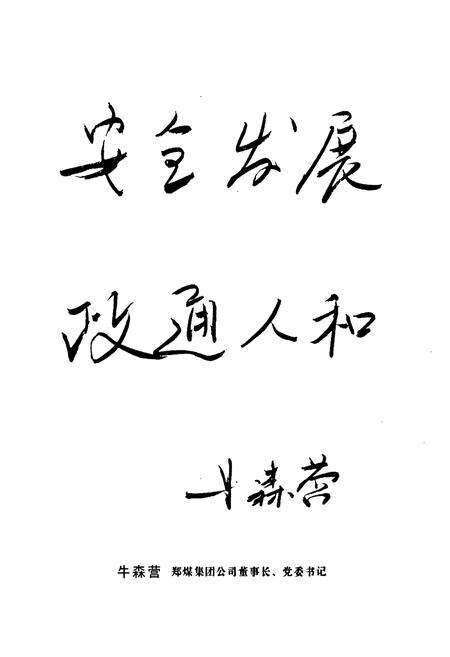 安全发展
政通人和
牛森营
牛森营 郑煤集团公司董事长、党委书记